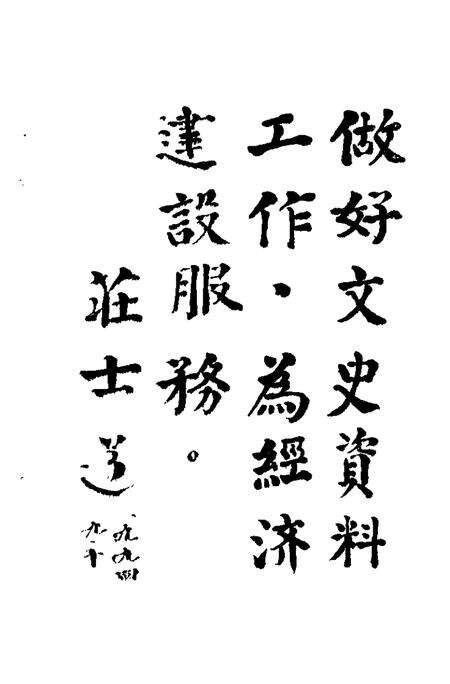 做好文史資料
工作，為經济
建設服務。
莊士道
一九九四
九·十